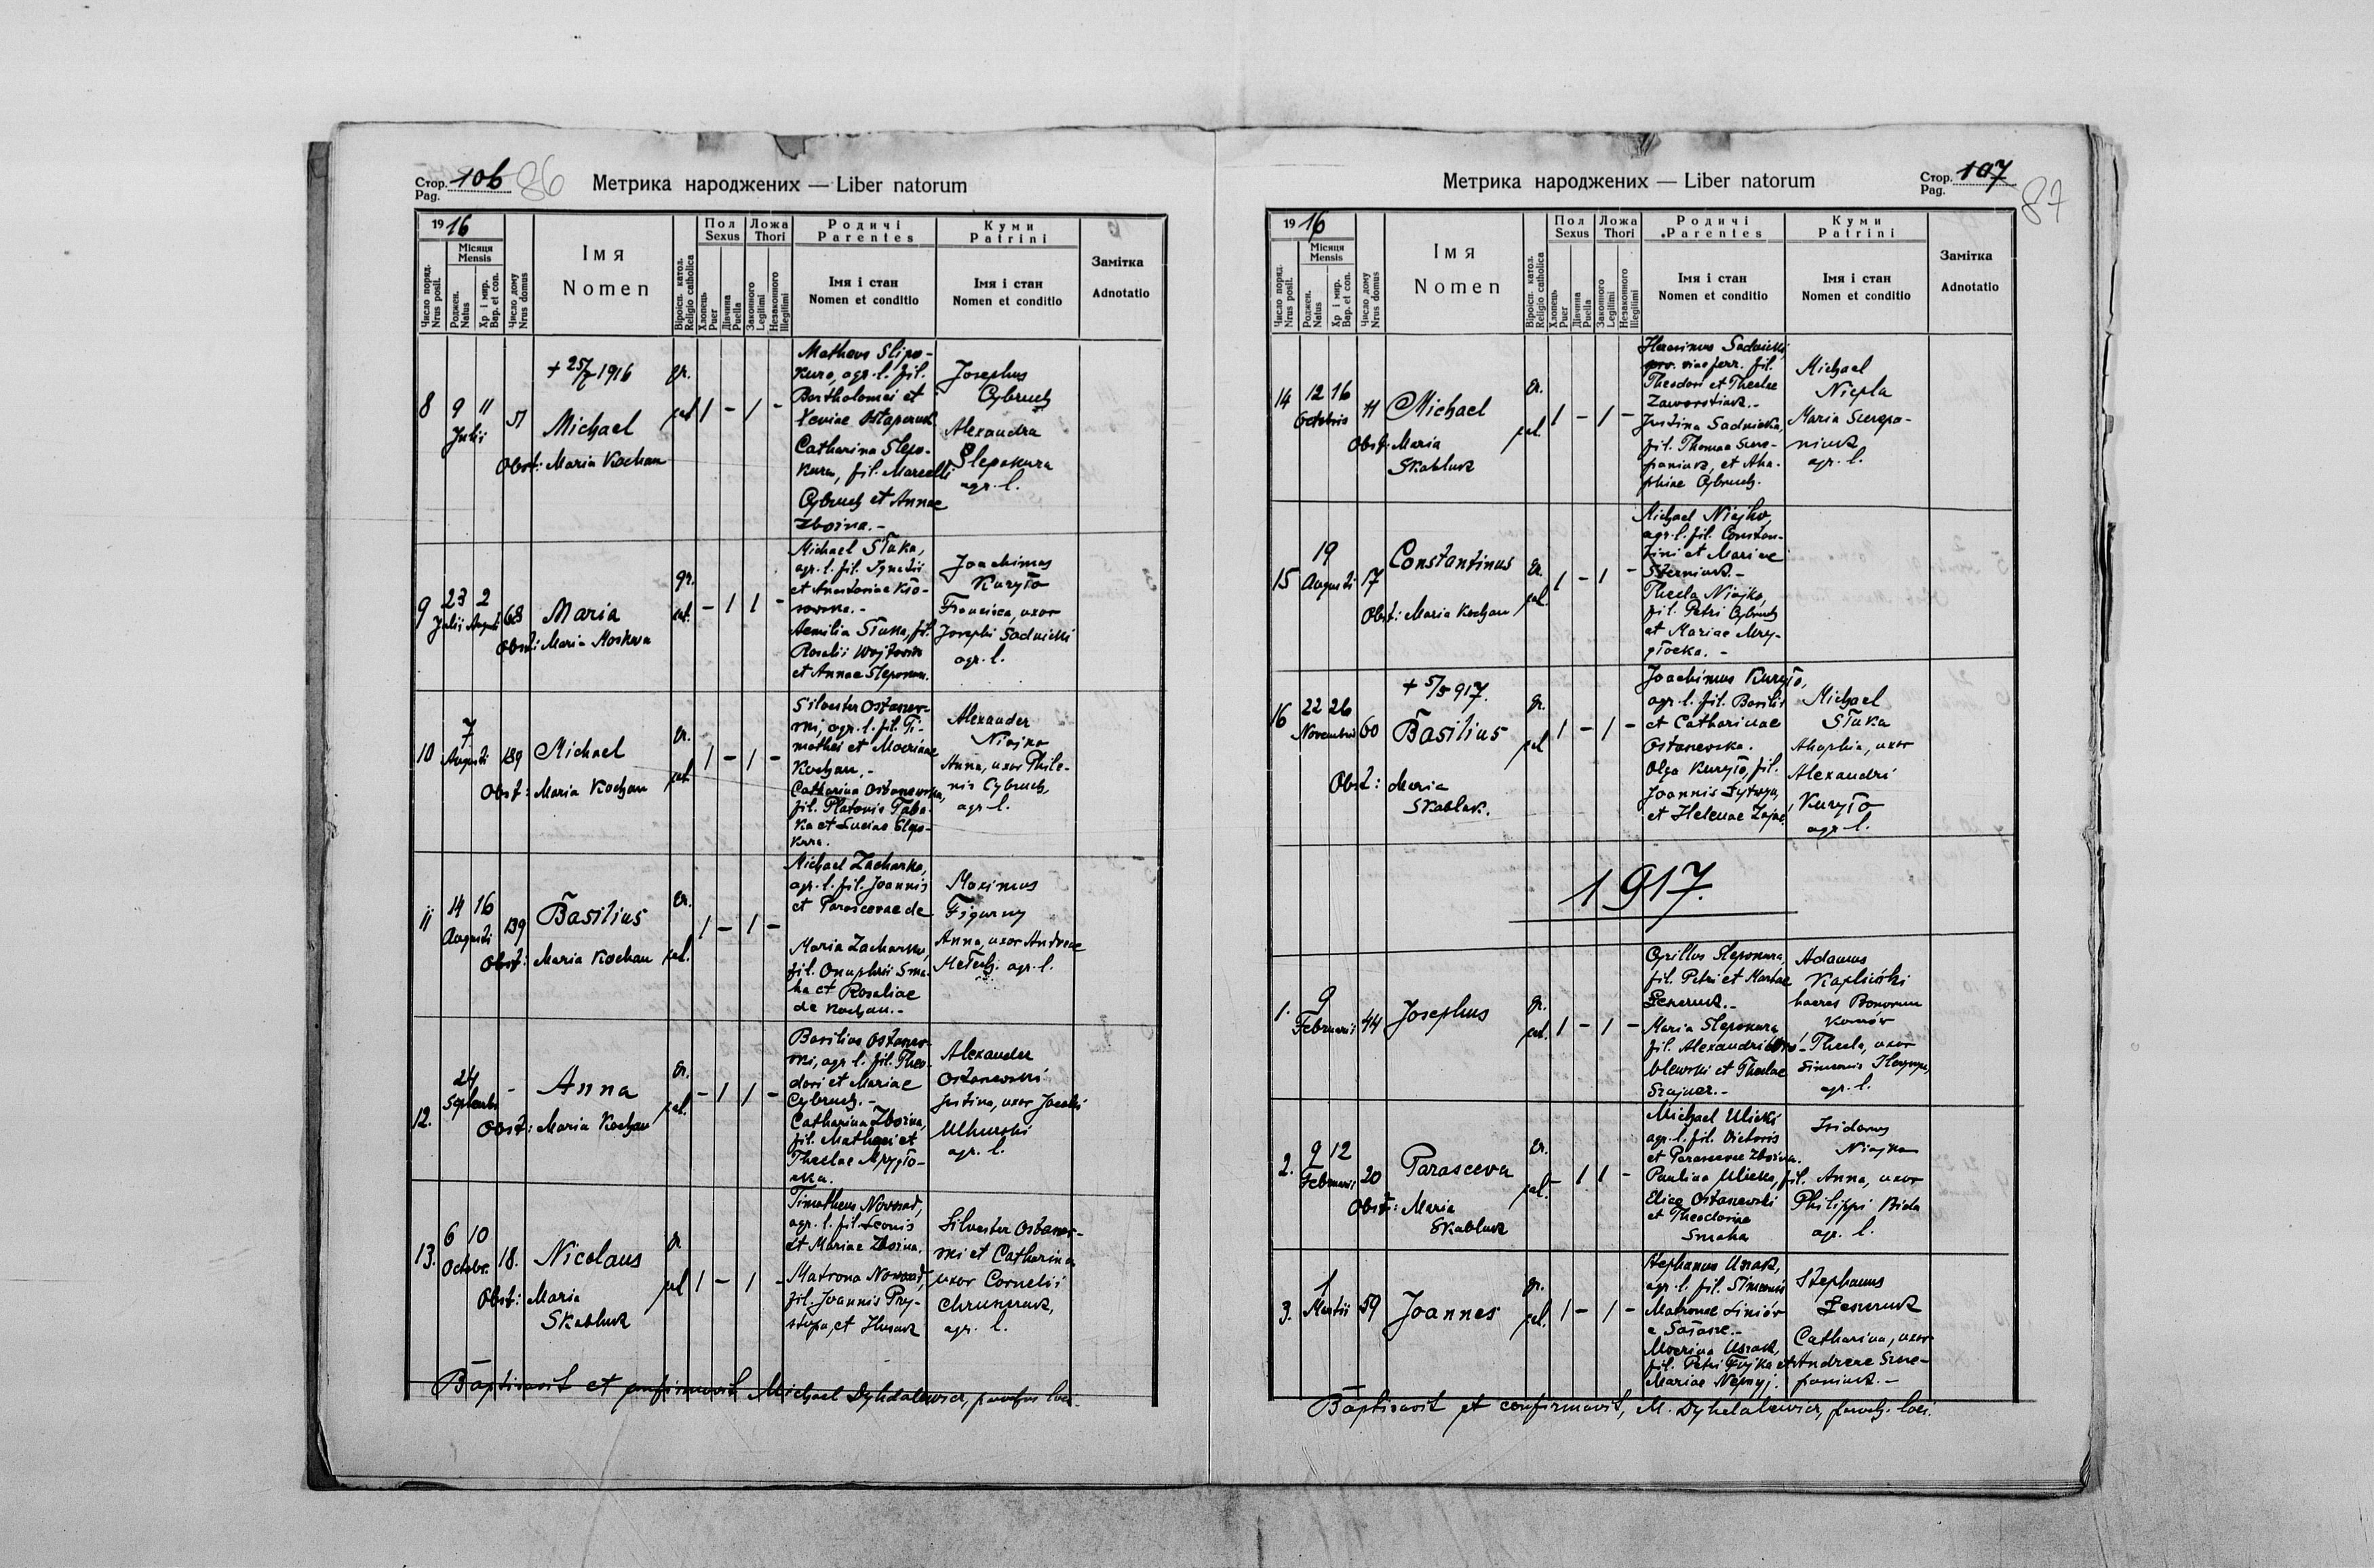 Стор. 106 86
Pag.
Метрика народжених — Liber natorum
1916
Число поряд.
Nrus posit.
Місяця
Mensis
Роджен.
Natus
Хр і мир.
Bap. et con.
Число дому
Nrus domus
Імя
Nomen
Віросп. катол.
Religio catholica
Пол
Sexus
Хлопець
Puer
Дівчина
Puella
Ложа
Thori
Законного
Legitimi
Незаконного
Illegitimi
Родичі
Parentes
Імя і стан
Nomen et conditio
Куми
Patrini
Імя і стан
Nomen et conditio
Замітка
Adnotatio
8 9 11
Julii
51
+ 25/7 1916
Michael
Obst: Maria Kochan
gr.
cat.
1 - 1 -
Matheus Slipo-
kura, agr. l. fil.
Bartholomei et
Xeniae Ostapczuk
Catharina Slepo-
kura, fil. Marcelli
Cybruch et Annae
Zboina.-
Josephus
Cybruch
Alexandra
Slepokura
agr. l.
9 23 2
Julii Augusti
68
Maria
Obst: Maria Moskwa
gr.
cat.
- 1 1 -
Michael Słuka,
agr. l. fil. Ignatii
et Anastasiae
Aemilia Słuka, fil.
et Annae Slepokura.
Joachimus
Kuryło
Francisca, uxor
Josephi Sadnicki
agr. l.
10 7
Augusti
189
Michael
Obst: Maria Kochan
gr.
cat.
1 - 1 -
Silvester Ostanew-
ski, agr. l. fil. Ti-
mothei et Mariae
Kochan.-
Catharina Ostanewska,
fil. Platonis Taba-
ka et Luciae Slepo-
kura.
Alexander
Niajko
Anna, uxor Phile-
nis Cybruch,
agr. l.
11 14 16
Augusti
139
Basilius
Obst: Maria Kochan
gr.
cat.
1 - 1 -
Michael Zacharko,
agr. l. fil. Joannis
et Parascevae de
Maria Zacharko,
fil. Onuphrii Sma-
ha et Rosaliae
de Kochan.-
Maximus
Figurny
Anna, uxor Andreae
agr. l.
12. 24
Septembr.
-
Anna
Obst: Maria Kochan
gr.
cat.
- 1 1 -
Basilius Ostanew-
ski, agr. l. fil. Theo-
dori et Mariae
Cybruch.-
Catharina Zboina,
fil. Mathaei et
Theclae
Alexander
Ostanewski
Justina, uxor Jacobi
Ulhurski
agr. l.
13. 6 10
Octobr.
18.
Nicolaus
Obst: Maria
Skabluk
gr.
cat
1 - 1 -
Timotheus Nowosad,
agr. l. fil. Leonis
et Mariae Zboina.
Matrona Nowosad,
fil. Joannis Pry-
stupa, et
Silvester Ostanew-
ski et Catharina
uxor Cornelii
agr. l.
Baptisavit et confirmavit Michael Dyhdalewicz, parochus loci.
Метрика народжених — Liber natorum
Стор. 107
Pag.
87
1916
Число поряд.
Nrus posit.
Місяця
Mensis
Роджен.
Natus
Хр і мир.
Bap. et con.
Число дому
Nrus domus
Імя
Nomen
Віросп. катол.
Religio catholica
Пол
Sexus
Хлопець
Puer
Дівчина
Puella
Ложа
Thori
Законного
Legitimi
Незаконного
Illegitimi
Родичі
Parentes
Імя і стан
Nomen et conditio
Куми
Patrini
Імя і стан
Nomen et conditio
Замітка
Adnotatio
14 12 16
Octobris
11
Michael
Obst: Maria
Skabluk
gr.
cat.
1 - 1 -
Sadnicki,
fil.
Theodori et Theclae
Justina Sadnicka,
fil. Thomae
et Aha-
phiae Cybruch.
Michael
Niepla
Maria
agr. l.
15 19
Augusti
17
Constantinus
Obst: Maria Kochan
gr.
cat.
1 - 1 -
Michael Niajko,
agr. l. fil. Constan-
tini et Mariae
Thecla Niajko,
fil. Petri Cybruch
et Mariae Mry-
głocka.-
16 22 26
Novembris
60
+ 5/5 917.
Basilius
Obst: Maria
Skabluk.
gr.
cat
1 - 1 -
Joachimus Kuryło,
agr. l. fil. Basilii
et Catharinae
Ostanewska.
Olga Kuryło, fil.
Joannis
et Helenae Zając.
Michael
Słuka
Ahaphia, uxor
Alexandri
Kuryło
agr. l.
1917.
1. 9
Februarii
44
Josephus
gr.
cat.
1 - 1 -
Cyrillus Slepokura,
fil. Petri et Marthae
Maria Slepokura
fil. Alexandri
et Theclae
Szajner.-
Adamus
Kapliński
haeres Bonorum
Thecla, uxor
Simeonis
agr. l.
2. 9 12
Februarii
20
Parasceva
Obst: Maria
Skabluk
gr.
cat.
- 1 1 -
Michael Ulicki
agr. l. fil. Victoris
et Parascevae Zboina.
Paulina Ulicka, fil.
Eliae Ostanewski
et Theodosiae
Smaha
Isidorus
Niajko
Anna, uxor
Philippi Bida
agr. l.
3. 1
Martii
59
Joannes
gr.
cat.
1 - 1 -
Stephanus
agr. l. fil. Simeonis
Matronae
fil. Petri
Mariae
Stephanus
Catharina, uxor
Andreae
Baptisavit et confirmavit, M. Dyhdalewicz, paroch. loci.